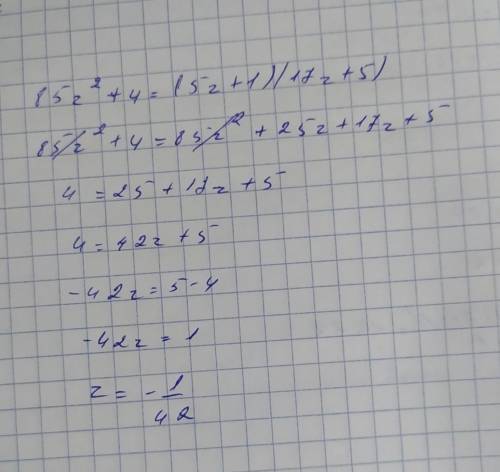 85z² + 4 = (5z + 1)(17z + 5)
85z² + 4 = 85z² + 25z + 17z + 5
4 = 25 + 17z + 5
4 = 42z + 5
-42z = 5 - 4
-42z = 1
z = -1/42